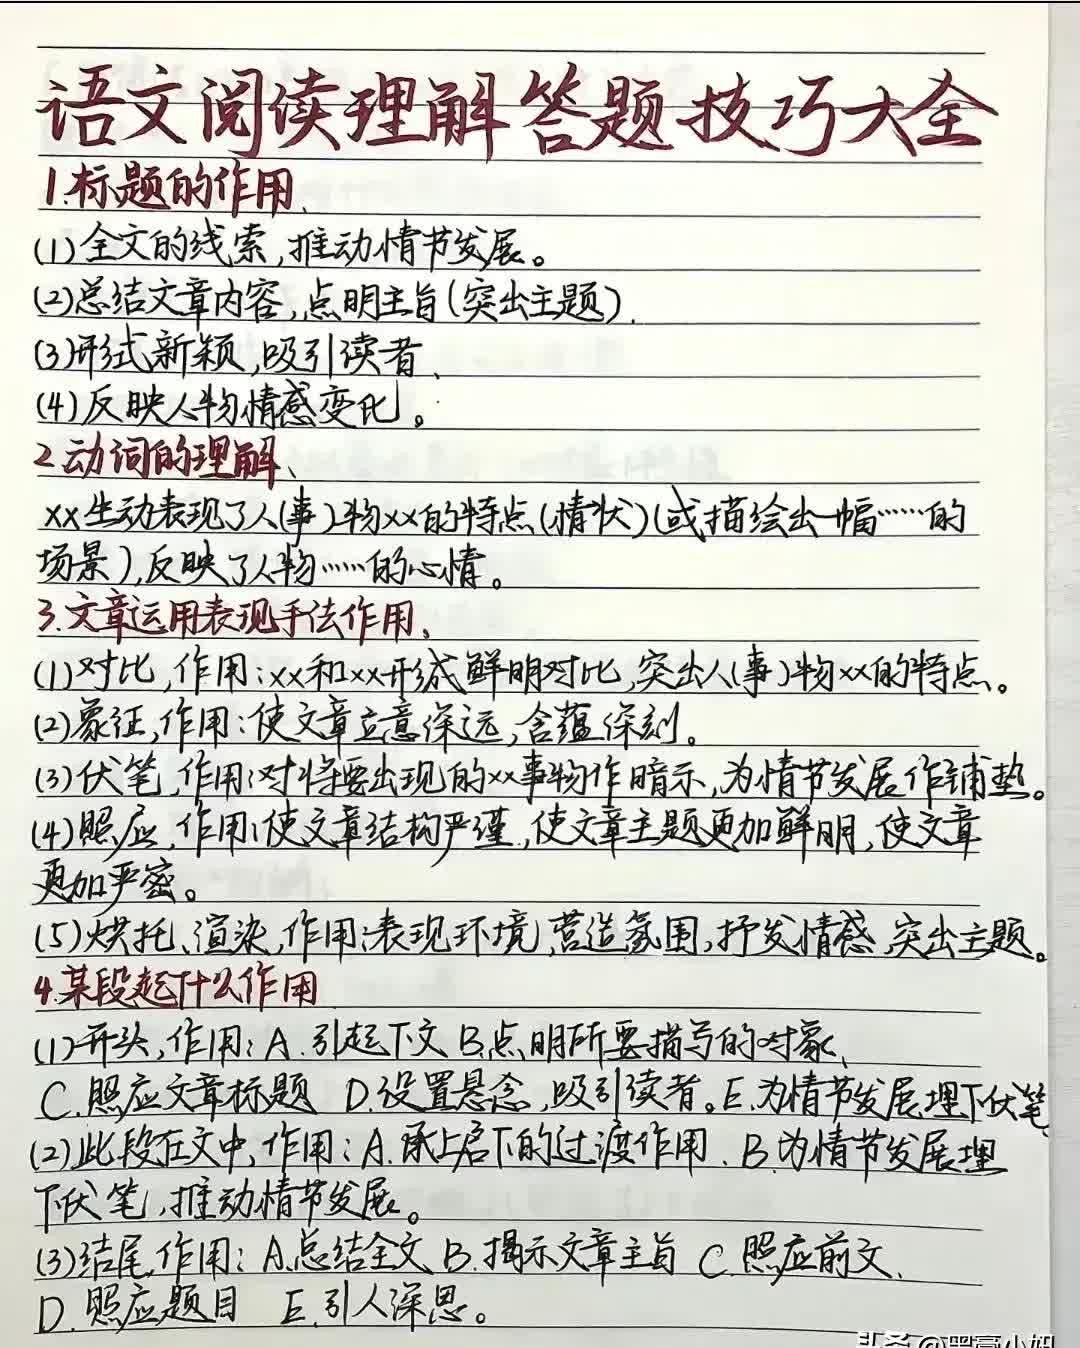 语文阅读理解答题技巧大全
1.标题的作用、
(1)全文的线索,推动情节发展。
(2)总结文章内容,点明主旨(突出主题).
(3)形式新颖,吸引读者、
(4)反映人物情感变化。
2.动词的理解、
xx生动表现了人(事)物xx的特点(情状)(或描绘出一幅……的
场景),反映了人物……的心情。
3.文章运用表现手法作用、
(1)对比,作用:xx和xx形成鲜明对比,突出人(事)物xx的特点。
(2)象征,作用:使文章立意深远,含蕴深刻。
(3)伏笔,作用:对将要出现的xx事物作暗示,为情节发展作铺垫。
(4)照应,作用:使文章结构严谨,使文章主题更加鲜明,使文章
更加严密。
(5)烘托、渲染,作用:表现环境,营造氛围,抒发情感,突出主题。
4.某段起什么作用
(1)开头,作用:A.引起下文 B.点明所要描写的对象、
C.照应文章标题 D.设置悬念,吸引读者。E.为情节发展埋下伏笔
(2)此段在文中,作用:A.承上启下的过渡作用.B.为情节发展埋
下伏笔,推动情节发展。
(3)结尾,作用:A.总结全文 B.揭示文章主旨 C.照应前文、
D.照应题目 E.引人深思。
头条 @黑豪小姐